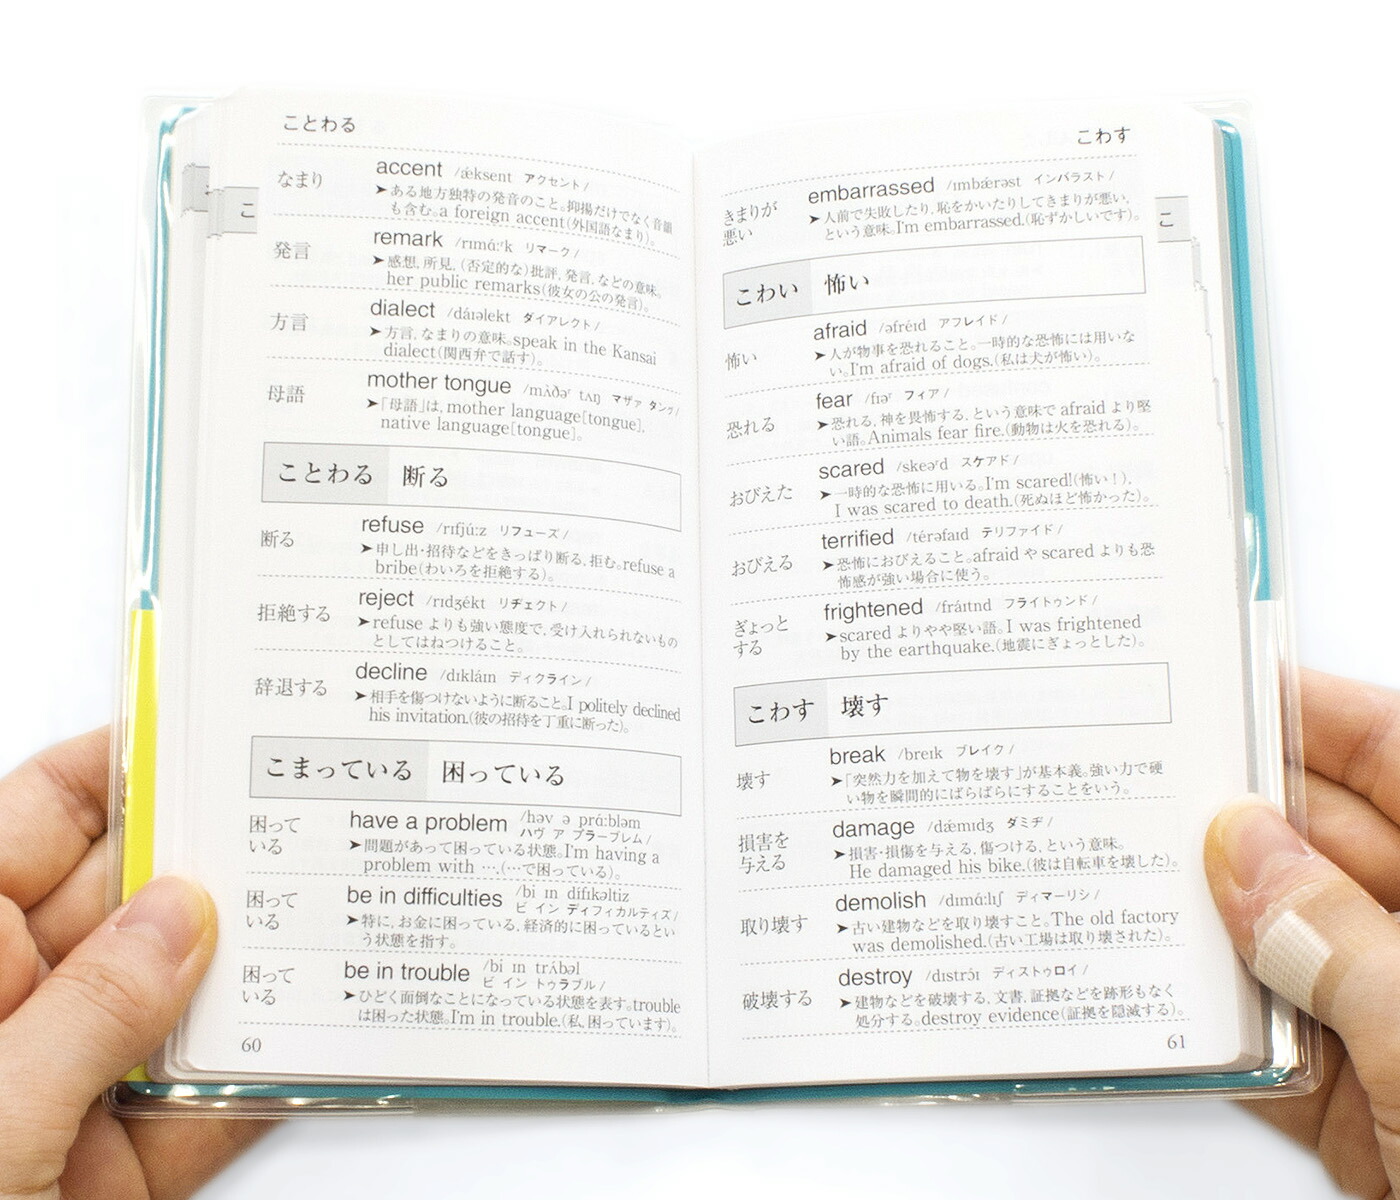 ことわる
こ
なまり
accent /ǽksent アクセント/
➤ある地方独特の発音のこと。抑揚だけでなく音韻
も含む。a foreign accent(外国語なまり)。
発言
remark /rɪmɑ́ːʳk リマーク/
➤感想, 所見, (否定的な)批評, 発言, などの意味。
her public remarks(彼女の公の発言)。
方言
dialect /dáɪəlekt ダイアレクト/
➤方言, なまりの意味。speak in the Kansai
dialect(関西弁で話す)。
母語
mother tongue /mʌ̀ðəʳ tʌŋ マザァ タング/
➤「母語」は, mother language[tongue],
native language[tongue]。
ことわる 断る
断る
refuse /rɪfjúːz リフューズ/
➤申し出・招待などをきっぱり断る, 拒む。refuse a
bribe(わいろを拒絶する)。
拒絶する
reject /rɪdʒékt リヂェクト/
➤refuse よりも強い態度で, 受け入れられないもの
としてはねつけること。
辞退する
decline /dɪkláɪn ディクライン/
➤相手を傷つけないように断ること。I politely declined
his invitation.(彼の招待を丁重に断った)。
こまっている 困っている
困って
いる
have a problem /həv ə prɑ́ːbləm
ハヴ ア プラーブレム/
➤問題があって困っている状態。I'm having a
problem with ….(…で困っている)。
困って
いる
be in difficulties /bi ɪn dífɪkəltiz
ビ イン ディフィカルティズ/
➤特に, お金に困っている, 経済的に困っているとい
う状態を指す。
困って
いる
be in trouble /bi ɪn trʌ́bəl
ビ イン トゥラブル/
➤ひどく面倒なことになっている状態を表す。trouble
は困った状態。I'm in trouble.(私, 困っています)。
60
こわす
こ
きまりが
悪い
embarrassed /ɪmbǽrəst インバラスト/
➤人前で失敗したり, 恥をかいたりしてきまりが悪い,
という意味。I'm embarrassed.(恥ずかしいです)。
こわい 怖い
怖い
afraid /əfréɪd アフレイド/
➤人が物事を恐れること。一時的な恐怖には用いな
い。I'm afraid of dogs.(私は犬が怖い)。
恐れる
fear /fɪəʳ フィア/
➤恐れる, 神を畏怖する, という意味で afraid より堅
い語。Animals fear fire.(動物は火を恐れる)。
おびえた
scared /skeəʳd スケアド/
➤一時的な恐怖に用いる。I'm scared!(怖い！),
I was scared to death.(死ぬほど怖かった)。
おびえる
terrified /térəfaɪd テリファイド/
➤恐怖におびえること。afraid や scared よりも恐
怖感が強い場合に使う。
ぎょっと
する
frightened /fráɪtnd フライトゥンド/
➤scared よりやや堅い語。I was frightened
by the earthquake.(地震にぎょっとした)。
こわす 壊す
壊す
break /breɪk ブレイク/
➤「突然力を加えて物を壊す」が基本義。強い力で硬
い物を瞬間的にばらばらにすることをいう。
損害を
与える
damage /dǽmɪdʒ ダミヂ/
➤損害・損傷を与える, 傷つける, という意味。
He damaged his bike.(彼は自転車を壊した)。
取り壊す
demolish /dɪmɑ́ːlɪʃ ディマーリシ/
➤古い建物などを取り壊すこと。The old factory
was demolished.(古い工場は取り壊された)。
破壊する
destroy /dɪstrɔ́ɪ ディストゥロイ/
➤建物などを破壊する, 文書, 証拠などを跡形もなく
処分する。destroy evidence(証拠を隠滅する)。
61